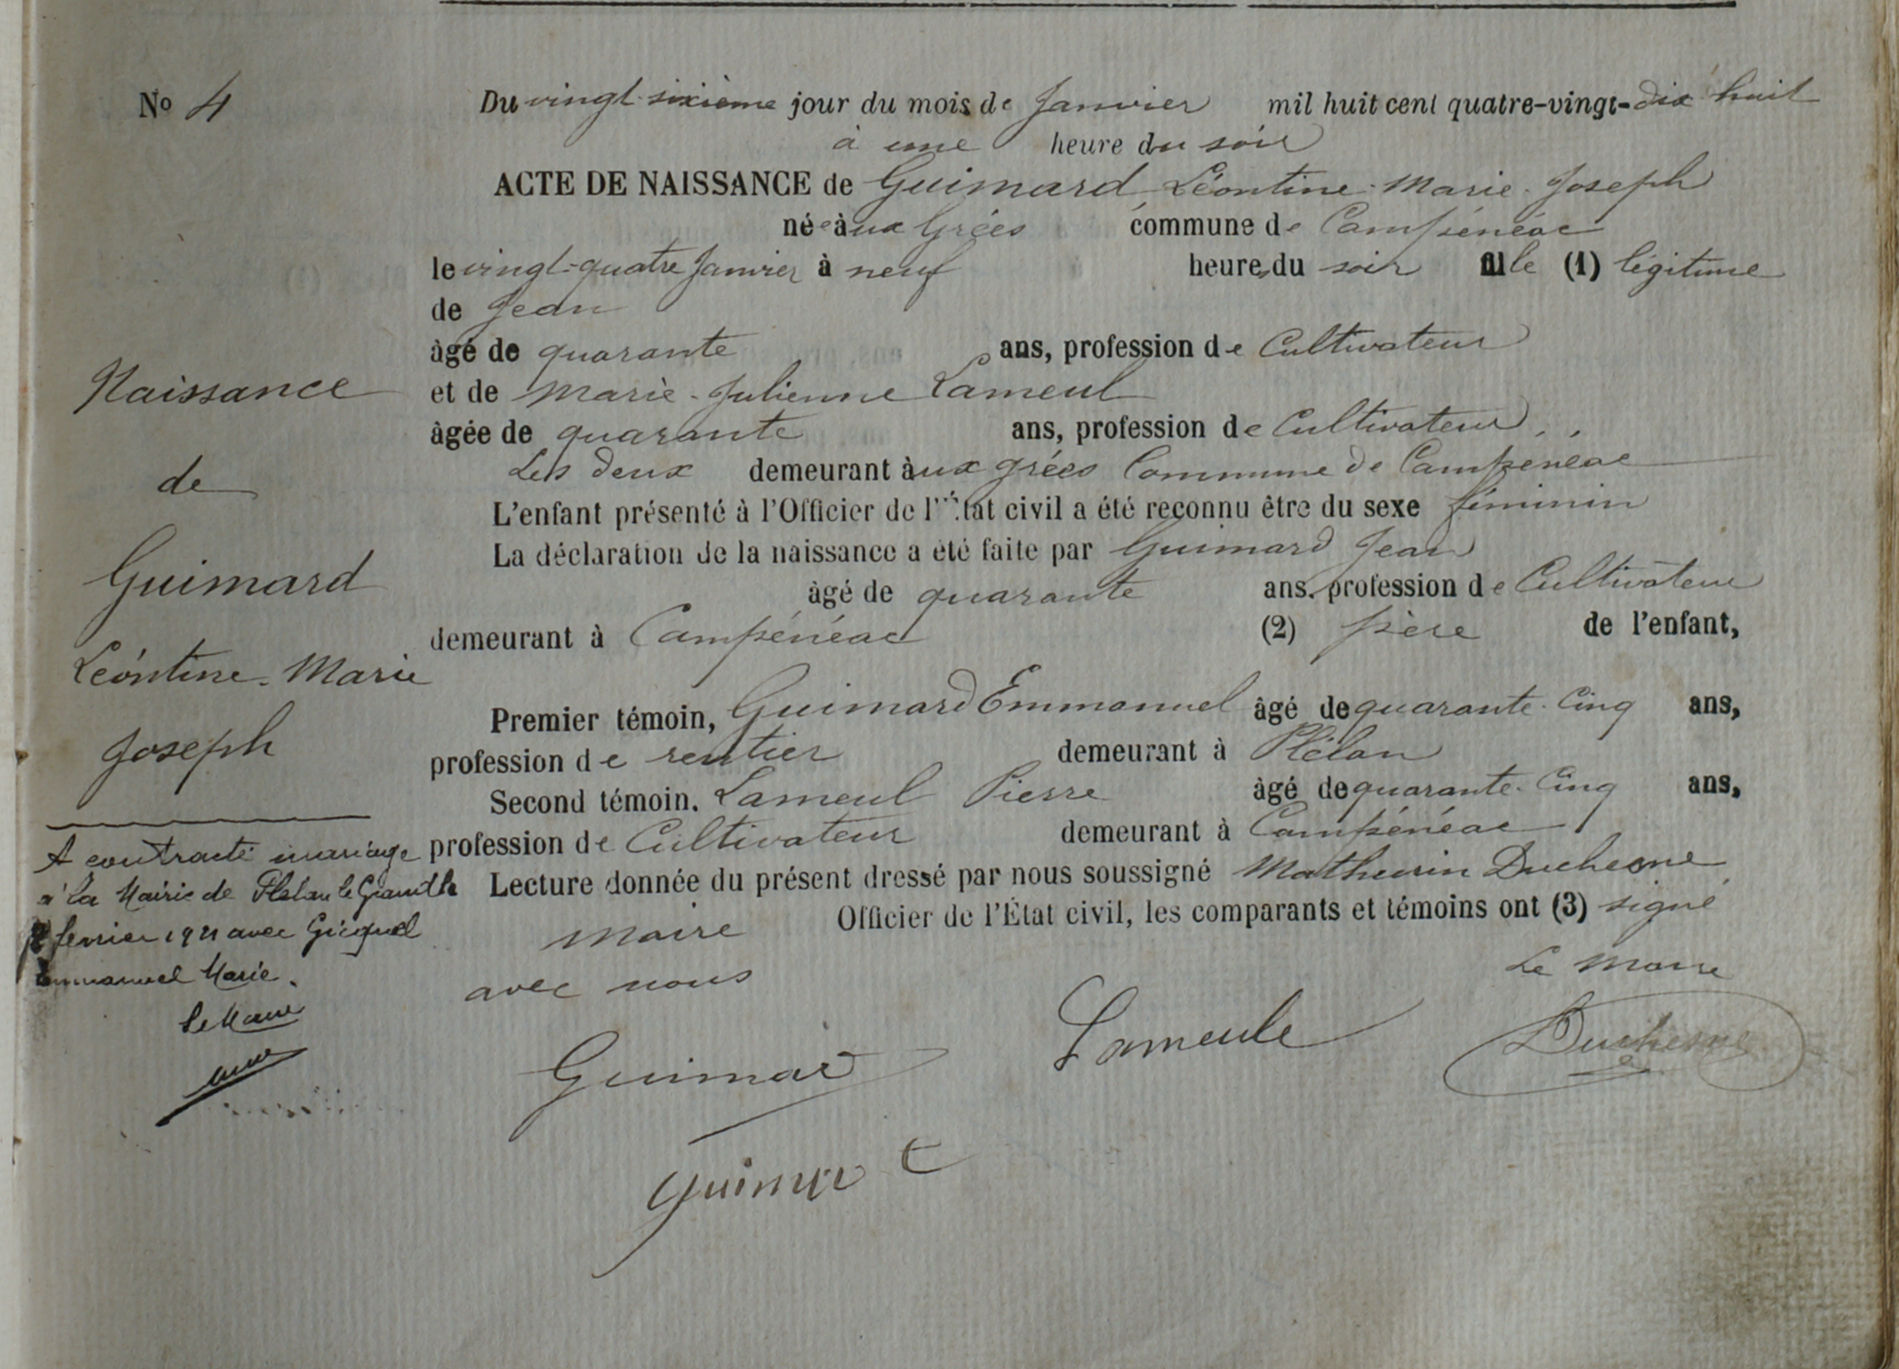 No 4
Du vingt-sixième jour du mois de Janvier mil huit cent quatre-vingt-dix huit
à une heure du soir
ACTE DE NAISSANCE de Guimard Léontine-Marie-Joseph
née aux Grées commune de Campénéac
le vingt-quatre Janvier à neuf heures du soir fille (1) légitime
de Jean
âgé de quarante ans, profession de Cultivateur
et de Marie-Julienne Lameul
âgée de quarante ans, profession de Cultivateur
Les deux demeurant aux grées Commune de Campénéac
L'enfant présenté à l'Officier de l'État civil a été reconnu être du sexe féminin
La déclaration de la naissance a été faite par Guimard Jean
âgé de quarante ans, profession de Cultivateur
demeurant à Campénéac (2) père de l'enfant,
Premier témoin, Guimard Emmanuel âgé de quarante-Cinq ans,
profession de rentier demeurant à Plélan
Second témoin. Lameul Pierre âgé de quarante-Cinq ans,
profession de Cultivateur demeurant à Campénéac
Lecture donnée du présent dressé par nous soussigné Mathurin Duchesne
maire Officier de l'État civil, les comparants et témoins ont (3) signé
avec nous
Le Maire
Guimard
Lameule
Duchesne
Guimar
Naissance
de
Guimard
Léontine-Marie
Joseph
A contracté mariage
à la Mairie de Plélan le Grand le
février 1921 avec Gicquel
Emmanuel Marie.
Le Maire